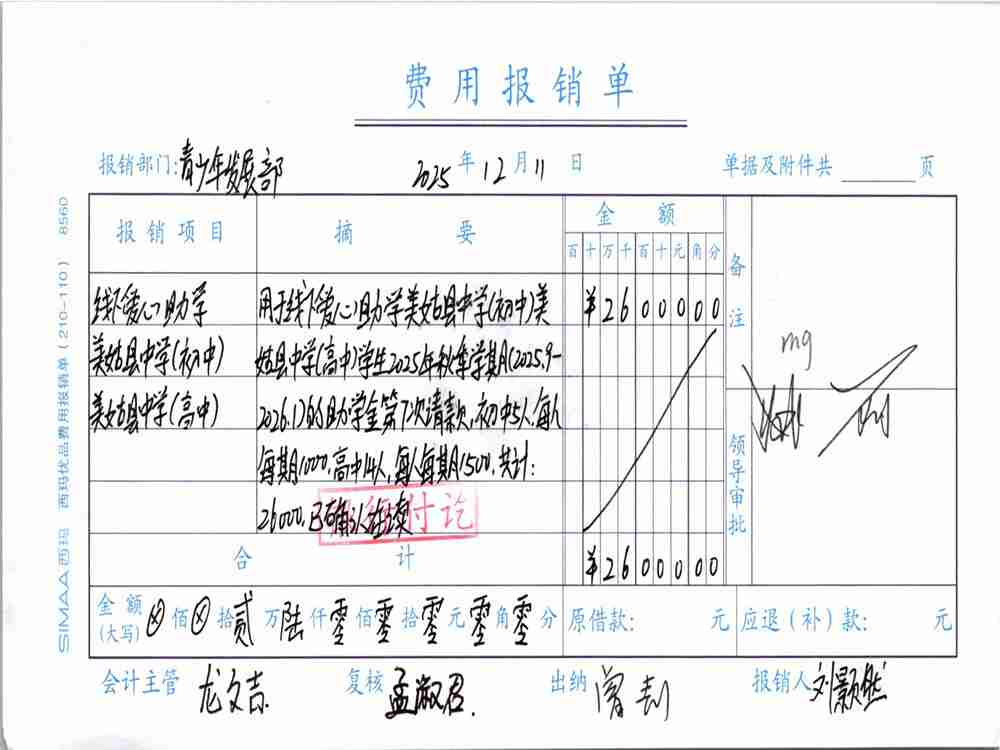 费用报销单
报销部门:青少年发展部 2025年12月11日 单据及附件共 页
报销项目 摘要 金额 备注
百十万千百十元角分
线下(爱心)助学 用于线下(爱心)助学美姑县中学(初中)美 ¥2600000
美姑县中学(初中) 姑县中学(高中)学生2025年秋季学期(2025.9-
美姑县中学(高中) 2026.1)的助学金第1次请款,初中5人,每人
每期1000,高中14人,每人每期1500,共计:
26000,已确认在读
付讫
合计 ¥2600000
领导审批
金额(大写) ⊗佰⊗拾贰万陆仟零佰零拾零元零角零分 原借款: 元 应退(补)款: 元
会计主管 龙文吉 复核 孟淑君. 出纳 曾 报销人 刘颢然
SIMAA西玛 西玛优品费用报销单(210-110) 8560